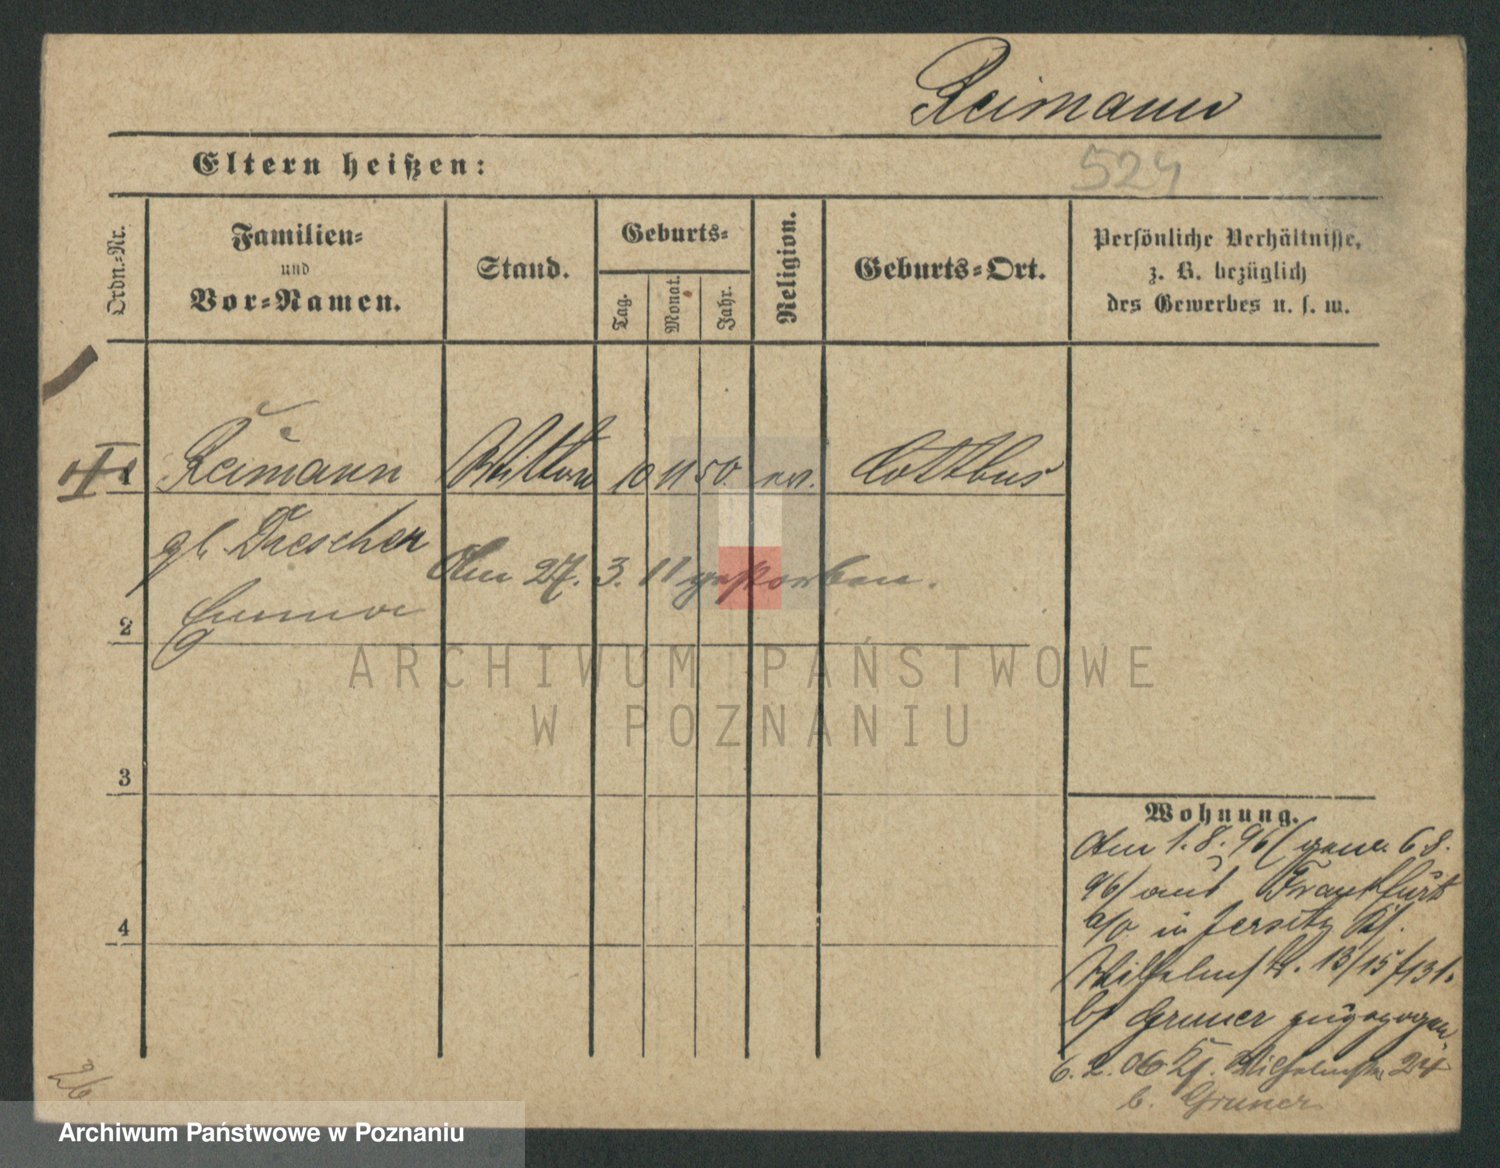 Reimann
Eltern heißen:
524
Ordn.-Nr.
Familien-
und
Vor-Namen.
Stand.
Geburts-
Tag.
Monat.
Jahr.
Religion.
Geburts-Ort.
Persönliche Verhältnisse,
z. B. bezüglich
des Gewerbes u. s. w.
1
Reimann Wittwe 10 11 50 ev. Cottbus
gb. Drescher
Am 27. 3. 11 gestorben.
2
Emma
ARCHIWUM PAŃSTWOWE
W POZNANIU
3
Wohnung.
Am 1. 8. 96 / gem. 6 8.
96 / aus Frankfurt
a/O in Jersitz
4
Wilhelmstr. 13/15
bj Gruner zugezogen
6. 2. 06 Wilhelmstr 24
b. Gruner
26
Archiwum Państwowe w Poznaniu